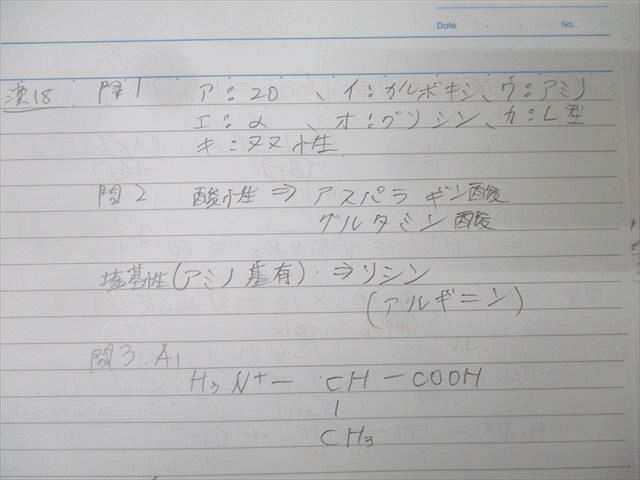 Date . . No.
演18 問1 ア:20 、イ:カルボキシ、ウ:アミノ
エ:α 、オ:グリシン、カ:L型
キ:双性
問2 酸性 ⇒ アスパラギン酸
グルタミン酸
塩基性(アミノ基有)・⇒リシン
(アルギニン)
問3. A1
H3N+ー CH ー COOH
|
CH3